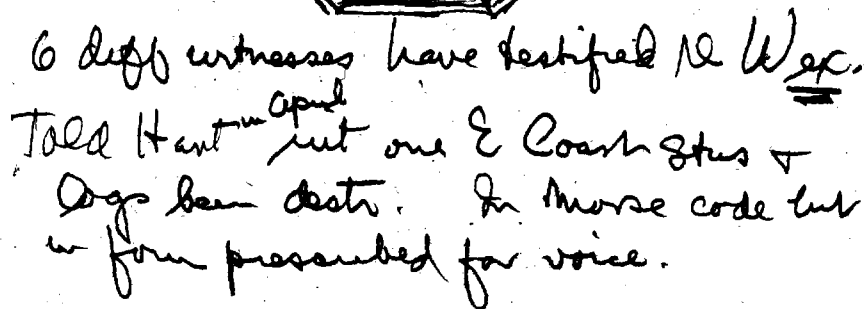 6 diff witnesses have testified re W ex.
Told Hart in April but one E Coast Stns +
logs been destr. In Morse code but
in form prescribed for voice.